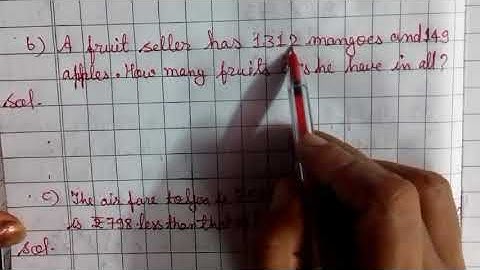 b) A fruit seller has 1312 mangoes and 149
apples. How many fruits he have in all?
sol.
c) The air fare to
is ₹798 less than that
sol.